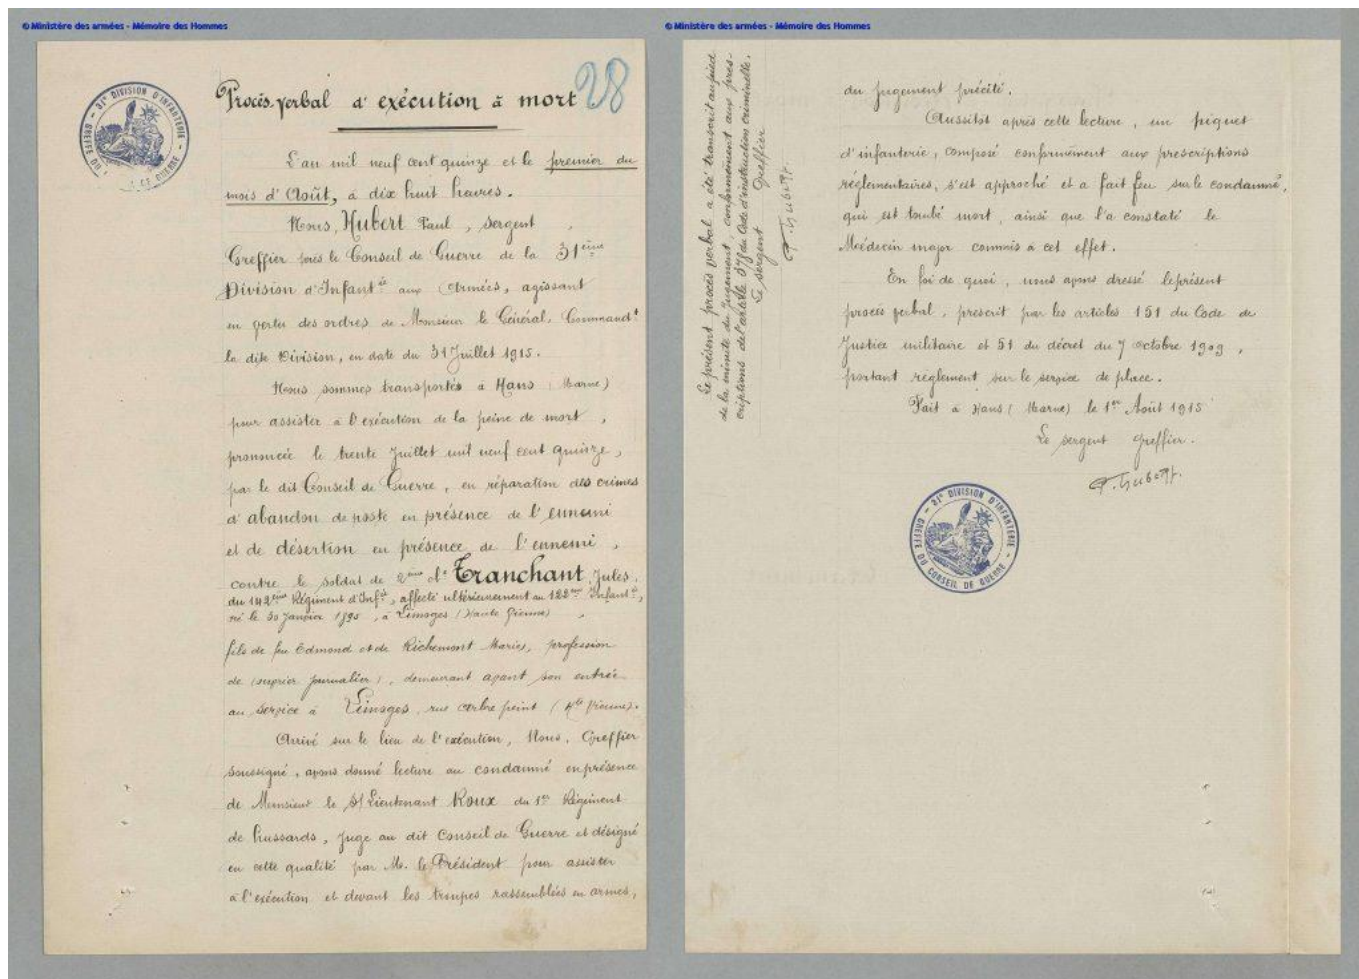 © Ministère des armées - Mémoire des Hommes
28
31e DIVISION D'INFANTERIE
GREFFE DU CONSEIL DE GUERRE
Procès-verbal d'exécution à mort
L'an mil neuf cent quinze et le premier du
mois d'Août, à dix huit heures.
Nous, Hubert Paul, sergent
Greffier près le Conseil de Guerre de la 31ème
Division d'Infantie aux Armées, agissant
en vertu des ordres de Monsieur le Général, Commandt
la dite Division, en date du 31 Juillet 1915.
Nous sommes transportés à Hans (Marne)
pour assister à l'exécution de la peine de mort,
prononcée le trente Juillet mil neuf cent quinze,
par le dit Conseil de Guerre, en réparation des crimes
d'abandon de poste en présence de l'ennemi
et de désertion en présence de l'ennemi,
contre le soldat de 2ème cl. Tranchant, Jules,
du 142ème Régiment d'Infie, affecté ultérieurement au 122ème Infantie,
né le 30 Janvier 1895, à Limoges (Haute Vienne)
fils de feu Edmond et de Richemont Marie, profession
de (ouvrier journalier), demeurant avant son entrée
au service à Limoges, rue Arbre peint (Hte Vienne).
Arrivé sur le lieu de l'exécution, Nous, Greffier
soussigné, avons donné lecture au condamné en présence
de Monsieur le S/Lieutenant Roux du 1er Régiment
de hussards, Juge au dit Conseil de Guerre et désigné
en cette qualité par M. le Président pour assister
à l'exécution et devant les troupes rassemblées en armes,
© Ministère des armées - Mémoire des Hommes
Le présent procès verbal a été transcrit au pied
de la minute du jugement, conformément aux pres-
criptions de l'article 378 du Code d'instruction criminelle.
Le sergent Greffier
P. Hubert
du jugement précité.
Aussitôt après cette lecture, un piquet
d'infanterie, composé conformément aux prescriptions
réglementaires, s'est approché et a fait feu sur le condamné,
qui est tombé mort, ainsi que l'a constaté le
Médecin major commis à cet effet.
En foi de quoi, nous avons dressé le présent
procès verbal, prescrit par les articles 151 du Code de
Justice militaire et 51 du décret du 7 octobre 1909,
portant règlement sur le service de place.
Fait à Hans (Marne) le 1er Août 1915
Le sergent Greffier.
P. Hubert
31e DIVISION D'INFANTERIE
GREFFE DU CONSEIL DE GUERRE